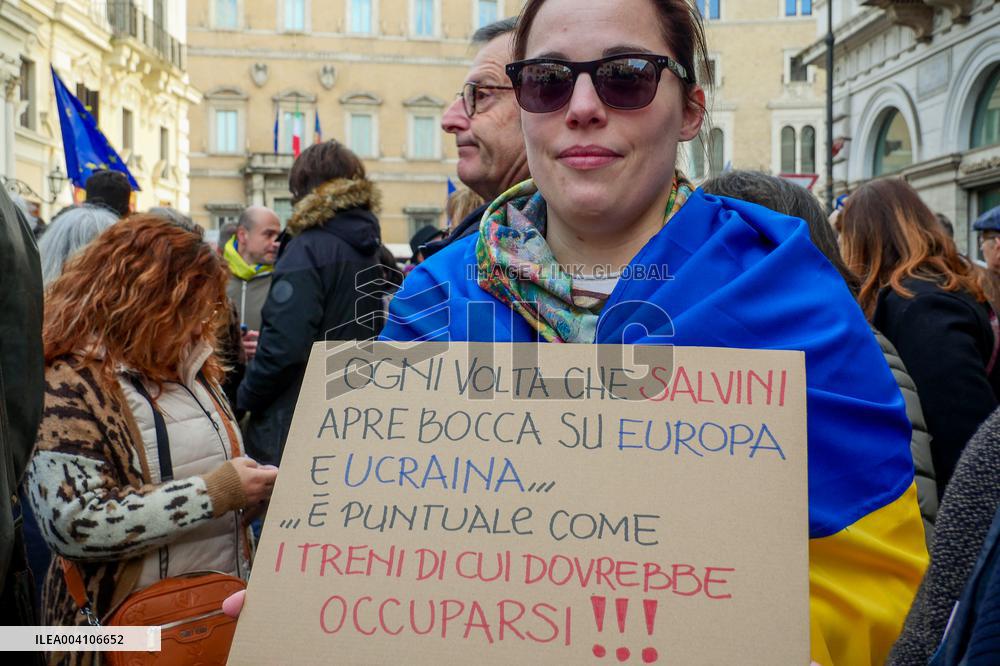 OGNI VOLTA CHE SALVINI
APRE BOCCA SU EUROPA
E UCRAINA...
...È PUNTUALE COME
I TRENI DI CUI DOVREBBE
OCCUPARSI!!!
IMAGE LINK GLOBAL
ILG
ILEA004106652